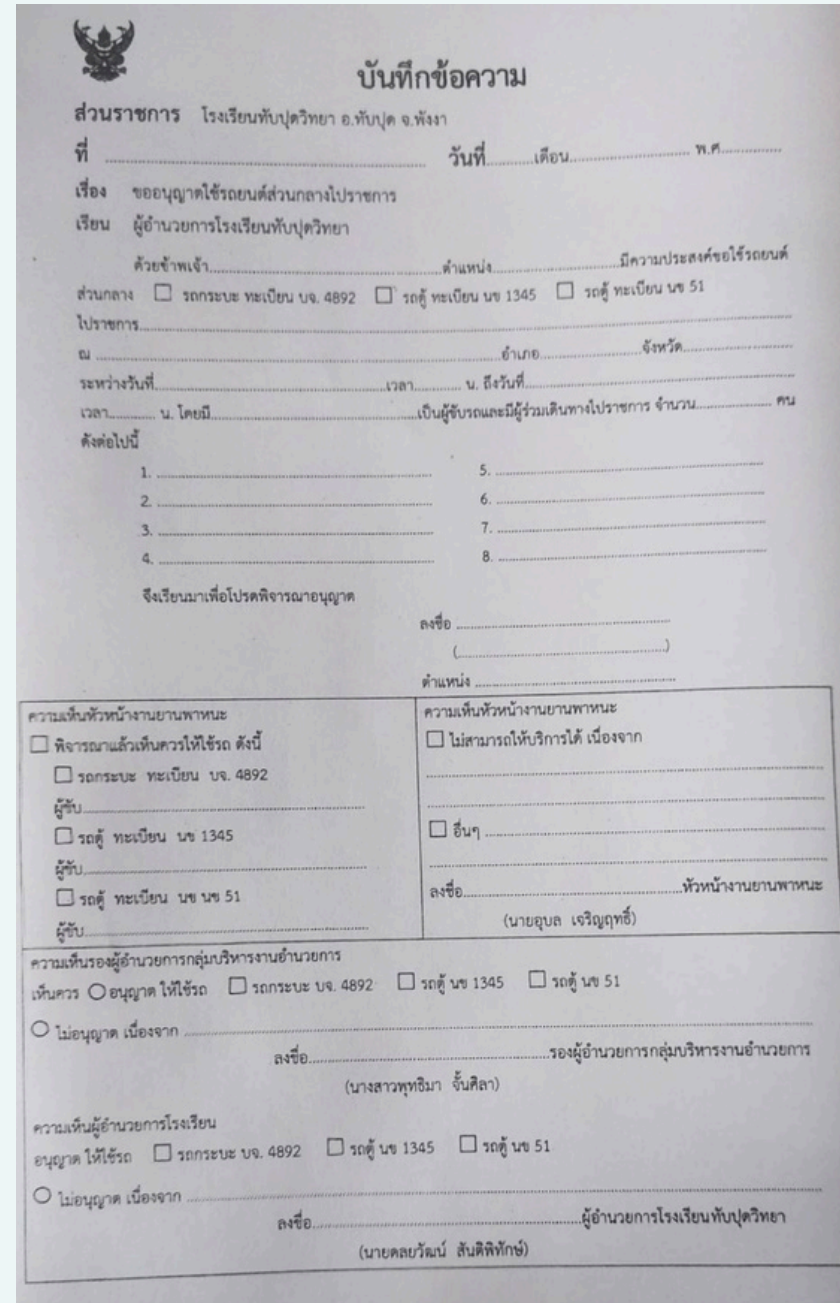 บันทึกข้อความ
ส่วนราชการ โรงเรียนทับปุดวิทยา อ.ทับปุด จ.พังงา
ที่ .................................................... วันที่...........เดือน............................ พ.ศ..............
เรื่อง ขออนุญาตใช้รถยนต์ส่วนกลางไปราชการ
เรียน ผู้อำนวยการโรงเรียนทับปุดวิทยา
ด้วยข้าพเจ้า..................................................ตำแหน่ง...........................มีความประสงค์ขอใช้รถยนต์
ส่วนกลาง ☐ รถกระบะ ทะเบียน บจ. 4892 ☐ รถตู้ ทะเบียน นข 1345 ☐ รถตู้ ทะเบียน นข 51
ไปราชการ....................................................................................................
ณ ............................................................อำเภอ......................จังหวัด........................
ระหว่างวันที่..................................................เวลา............ น. ถึงวันที่..................................................
เวลา............ น. โดยมี............................................เป็นผู้ขับรถและมีผู้ร่วมเดินทางไปราชการ จำนวน.................. คน
ดังต่อไปนี้
1. ............................................................ 5. ............................................................
2. ............................................................ 6. ............................................................
3. ............................................................ 7. ............................................................
4. ............................................................ 8. ............................................................
จึงเรียนมาเพื่อโปรดพิจารณาอนุญาต
ลงชื่อ ..................................................
(..................................................)
ตำแหน่ง ..................................................
ความเห็นหัวหน้างานยานพาหนะ
☐ พิจารณาแล้วเห็นควรให้ใช้รถ ดังนี้
☐ รถกระบะ ทะเบียน บจ. 4892
ผู้ขับ..................................................
☐ รถตู้ ทะเบียน นข 1345
ผู้ขับ..................................................
☐ รถตู้ ทะเบียน นข นข 51
ผู้ขับ..................................................
ความเห็นหัวหน้างานยานพาหนะ
☐ ไม่สามารถให้บริการได้ เนื่องจาก
......................................................................
......................................................................
☐ อื่นๆ ............................................................
......................................................................
ลงชื่อ..................................................หัวหน้างานยานพาหนะ
(นายอุบล เจริญฤทธิ์)
ความเห็นรองผู้อำนวยการกลุ่มบริหารงานอำนวยการ
เห็นควร ○ อนุญาต ให้ใช้รถ ☐ รถกระบะ บจ. 4892 ☐ รถตู้ นข 1345 ☐ รถตู้ นข 51
○ ไม่อนุญาต เนื่องจาก ....................................................................................................
ลงชื่อ..................................................รองผู้อำนวยการกลุ่มบริหารงานอำนวยการ
(นางสาวพุทธิมา จั้นศิลา)
ความเห็นผู้อำนวยการโรงเรียน
อนุญาต ให้ใช้รถ ☐ รถกระบะ บจ. 4892 ☐ รถตู้ นข 1345 ☐ รถตู้ นข 51
○ ไม่อนุญาต เนื่องจาก ....................................................................................................
ลงชื่อ..................................................ผู้อำนวยการโรงเรียนทับปุดวิทยา
(นายดลยวัฒน์ สันติพิทักษ์)